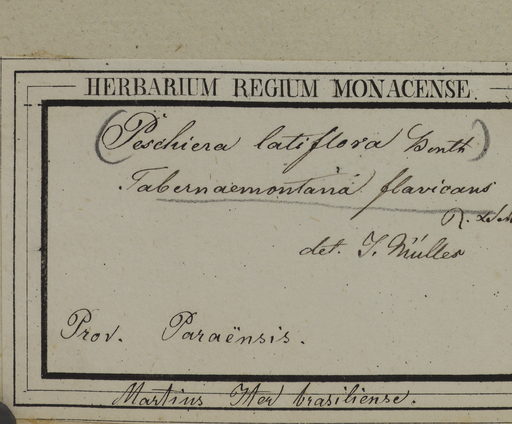 HERBARIUM REGIUM MONACENSE.
(Peschiera latiflora Benth)
Tabernaemontana flavicans
R. & Sch
det. J. Müller
Prov. Paraënsis.
Martius Iter brasiliense.